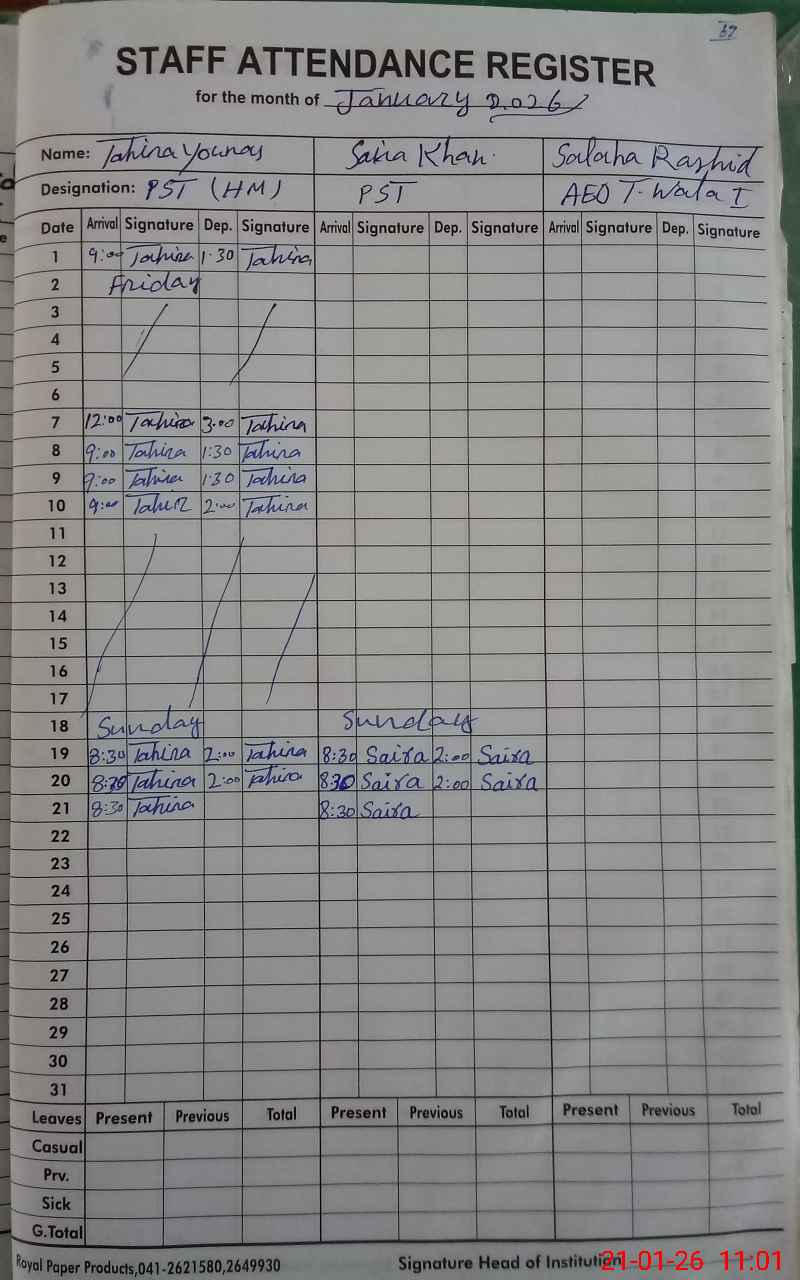 67
STAFF ATTENDANCE REGISTER
for the month of January 2026
Name: Tahira Younas Saira Khan. Salaha Rashid
Designation: PST (HM) PST AEO T. Wala I
Date Arrival Signature Dep. Signature Arrival Signature Dep. Signature Arrival Signature Dep. Signature
1 9:00 Tahira 1:30 Tahira
2 Friday
3
4
5
6
7 12:00 Tahira 3:00 Tahira
8 9:00 Tahira 1:30 Tahira
9 9:00 Tahira 1:30 Tahira
10 9:00 Tahira 2:00 Tahira
11
12
13
14
15
16
17
18 Sunday Sunday
19 8:30 Tahira 2:00 Tahira 8:30 Saira 2:00 Saira
20 8:30 Tahira 2:00 Tahira 830 Saira 2:00 Saira
21 8:30 Tahira 8:30 Saira
22
23
24
25
26
27
28
29
30
31
Leaves Present Previous Total Present Previous Total Present Previous Total
Casual
Prv.
Sick
G.Total
Royal Paper Products,041-2621580,2649930 Signature Head of Institution
21-01-26 11:01